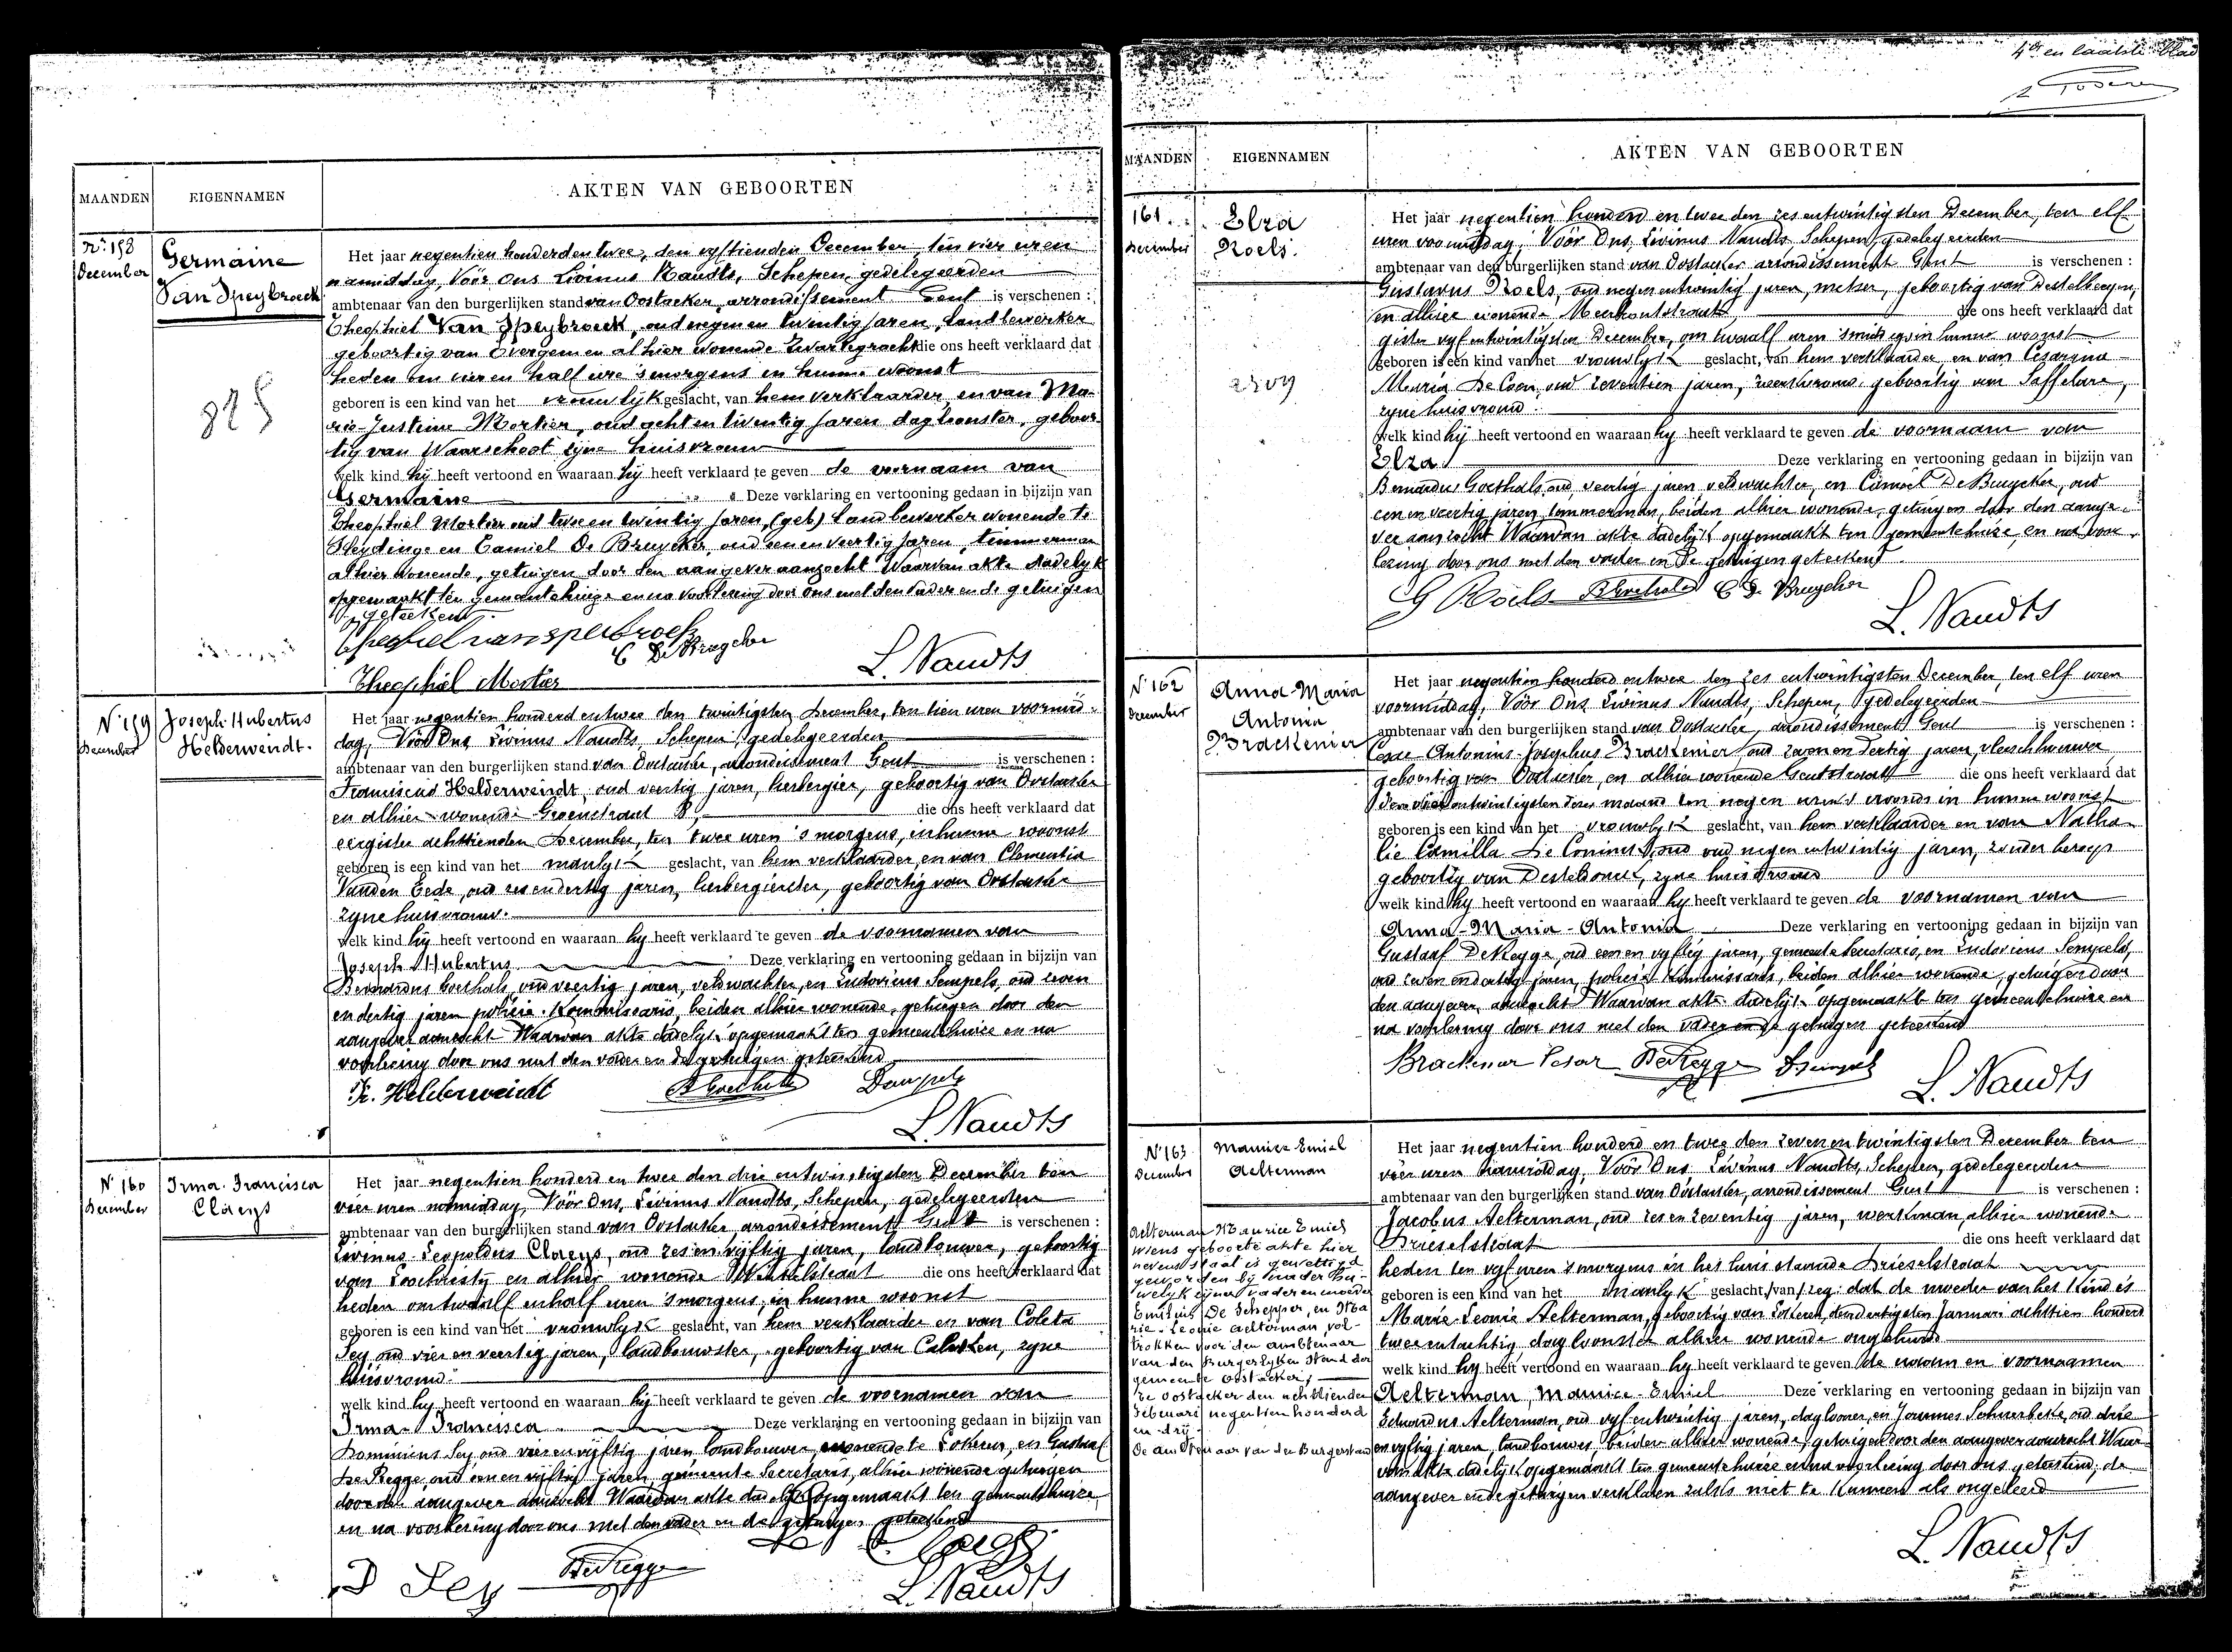 MAANDEN
EIGENNAMEN
AKTEN VAN GEBOORTEN
N: 158
December
Germaine
Van Speybroeck
825
Het jaar negentien honderden twee, den vyftienden December, ten vier uren
namiddag, Vóór Ons Livinus Naudts, Schepen, gedelegeerden
ambtenaar van den burgerlijken stand van Oostacker, arrondissement Gent is verschenen :
Theophiel Van Speybroeck, oud negen en twintig jaren, landbewerker
geboortig van Evergem en alhier wonende Zwartegracht die ons heeft verklaard dat
heden ten vier en half ure 's morgens in hunne woonst
geboren is een kind van het vrouwlijk geslacht, van hem verklaarder en van Ma-
rie-Justine Mortier, oud acht en twintig jaren dagloonster, geboor-
tig van Waarschoot zijne huisvrouw
welk kind hij heeft vertoond en waaraan hij heeft verklaard te geven de voornaam van
Germaine Deze verklaring en vertooning gedaan in bijzijn van
Theophiel Mortier oud twee en twintig jaren, (geb) landbewerker wonende te
Sleydinge en Camiel De Bruycker, oud een en veertig jaren, timmerman
alhier wonende, getuigen door den aangever aanzocht Waarvan akte dadelyk
opgemaakt ten gemeentehuize en na voorlezing door ons met den vader en de getuigen
geteekend.
Theophiel van speibroek
C De Bruycker
Theophiel Mortier
L. Naudts
N: 159
December
Joseph-Hubertus
Helderweirdt.
Het jaar negentien honderd en twee den twintigsten December, ten tien uren voormid-
dag, Vóór Ons, Livinus Naudts, Schepen, gedelegeerden
ambtenaar van den burgerlijken stand van Oostacker, arrondissement Gent is verschenen :
Franciscus Helderweirdt, oud veertig jaren, herbergier, geboortig van Oostacker
en alhier wonende Groenstraat B, die ons heeft verklaard dat
eergister achttienden December, ten twee uren 's morgens, in hunne woonst
geboren is een kind van het manlyk geslacht, van hem verklaarder en van Clementia
Vanden Eede, oud zes en dertig jaren, herbergierster, geboortig van Oostacker
zyne huisvrouw.
welk kind hij heeft vertoond en waaraan hy heeft verklaard te geven de voornamen van
Joseph-Hubertus Deze verklaring en vertooning gedaan in bijzijn van
Bernardus Goethals, oud veertig jaren, veldwachter, en Ludovicus Sempels, oud zeven
en dertig jaren policie-Kommissaris, beiden alhier wonende, getuigen door den
aangever aanzocht Waarvan akte dadelyk opgemaakt ten gemeentehuize en na
voorlezing door ons met den vader en de getuigen geteekend
Fr. Helderweirdt
B Goethals
L. Naudts
N: 160
December
Irma-Francisca
Claeys
Het jaar negentien honderd en twee den drie en twintigsten December ten
vier uren namiddag, Vóór Ons, Livinus Naudts, Schepen, gedelegeerden
ambtenaar van den burgerlijken stand van Oostacker arrondissement Gent is verschenen :
Livinus-Leopoldus Claeys, oud zes en vijftig jaren, landbouwer, geboortig
van Loochristij en alhier wonende die ons heeft verklaard dat
heden om twaalf en half uren 's morgens, in hunne woonst
geboren is een kind van het vrouwlyk geslacht, van hem verklaarder en van Coleta
Sey oud vier en veertig jaren, landbouwster, geboortig van Calcken, zyne
huisvrouw.
welk kind hy heeft vertoond en waaraan hij heeft verklaard te geven de voornamen van
Irma-Francisca Deze verklaring en vertooning gedaan in bijzijn van
Dominicus Sey oud vier en vyftig jaren landbouwer, wonende te Lokeren, en Gustaaf
De Regge oud een en vijftig jaren, gemeente Secretaris, alhier wonende getuigen
door den aangever aanzocht Waarvan akte dadelyk opgemaakt ten gemeentehuize,
en na voorlezing door ons met den vader en de getuigen geteekend
D Sey
De Regge
L. Naudts
4de en laatste blad
MAANDEN
EIGENNAMEN
AKTEN VAN GEBOORTEN
161.
December
Elza
Roels.
Het jaar negentien honderd en twee den zes en twintigsten December, ten elf
uren voormiddag, Vóór Ons, Livinus Naudts, Schepen, gedelegeerden
ambtenaar van den burgerlijken stand van Oostacker arrondissement Gent is verschenen :
Gustavus Roels, oud negen en twintig jaren, metser, geboortig van Destelbergen,
en alhier wonende Meerhoutstraat, die ons heeft verklaard dat
gister vyf en twintigsten December, om twaalf uren 's middags in hunne woonst
geboren is een kind van het vrouwlyk geslacht, van hem verklaarder, en van Cesarine
Maria De Coen, oud zeventien jaren, geboortig van Saffelare,
zyne huisvrouw.
welk kind hij heeft vertoond en waaraan hy heeft verklaard te geven de voornaam van
Elza Deze verklaring en vertooning gedaan in bijzijn van
Bernardus Goethals, oud veertig jaren veldwachter, en Camiel De Bruycker, oud
een en veertig jaren timmerman, beiden alhier wonende, getuigen door den aange-
ver aanzocht Waarvan akte dadelijk opgemaakt ten gemeentehuize, en na voor-
lezing door ons met den vader en de getuigen geteekend.
G Roels
B Goethals
C De Bruycker
L. Naudts
N: 162
December
Anna-Maria
Antonia
Braeckenier
Het jaar negentien honderd en twee den zes en twintigsten December, ten elf uren
voormiddag, Vóór Ons, Livinus Naudts, Schepen, gedelegeerden
ambtenaar van den burgerlijken stand van Oostacker, arrondissement Gent is verschenen :
Cesar Antonius-Josephus Braeckenier, oud zeven en dertig jaren, vleeschhouwer,
geboortig van Oostacker, en alhier wonende Gentstraat die ons heeft verklaard dat
den vier en twintigsten dezer maand ten negen uren 's avonds in hunne woonst
geboren is een kind van het vrouwlyk geslacht, van hem verklaarder en van Natha-
lie Camilla De Coninck, oud negen en twintig jaren, zonder beroep
geboortig van Desteldonck, zyne huisvrouw
welk kind hy heeft vertoond en waaraan hy heeft verklaard te geven de voornamen van
Anna-Maria-Antonia Deze verklaring en vertooning gedaan in bijzijn van
Gustaaf De Regge, oud een en vyftig jaren, gemeente Secretaris, en Ludovicus Sempels,
oud zeven en dertig jaren, policie Kommissaris, beiden alhier wonende, getuigen door
den aangever aanzocht Waarvan akte dadelijk opgemaakt ten gemeentehuize en
na voorlezing door ons met den vader en de getuigen geteekend
Braeckenier Cesar
De Regge
L. Naudts
N: 163
December
Maurice-Emiel
Aelterman
Aelterman Maurice Emiel
wiens geboorte akte hier
nevens staat is gewettigd
geworden bij het hu-
welyk zyner vader en moeder
Emilius De Schepper, en Ma
rie-Leonie Aelterman, vol-
trokken voor den ambtenaar
van den Burgerlyken Stand der
gemeente Oostacker,
Te Oostacker den achttienden
Februari negentien honderd
en drij.
De ambtenaar van den Burgerstand
Het jaar negentien honderd en twee den zeven en twintigsten December ten
vier uren namiddag, Vóór Ons Livinus Naudts, Schepen, gedelegeerden
ambtenaar van den burgerlijken stand van Oostacker, arrondissement Gent is verschenen :
Jacobus Aelterman, oud zes en zeventig jaren, werkman, alhier wonende
Drieselstraat die ons heeft verklaard dat
heden ten vyf uren 's morgens in het huis staande Drieselstraat
geboren is een kind van het manlyk geslacht, van zeg: dat de moeder van het kind is
Marie-Leonie Aelterman, geboortig van Lokeren, den dertigsten Januari achttien honderd
twee en tachtig, dagloonster alhier wonende ongehuwd
welk kind hy heeft vertoond en waaraan hy heeft verklaard te geven de naam en voornaamen
Aelterman, Maurice-Emiel Deze verklaring en vertooning gedaan in bijzijn van
Eduardus Aelterman, oud vyf en twintig jaren, daglooner, en Joannes oud drie
en vyftig jaren, landbouwer, beiden alhier wonende, getuigen door den aangever aanzocht Waar-
van akte dadelijk opgemaakt ten gemeentehuize en na voorlezing door ons geteekend, de
aangever en de getuigen verklaren zulks niet te kunnen als ongeleerd
L. Naudts